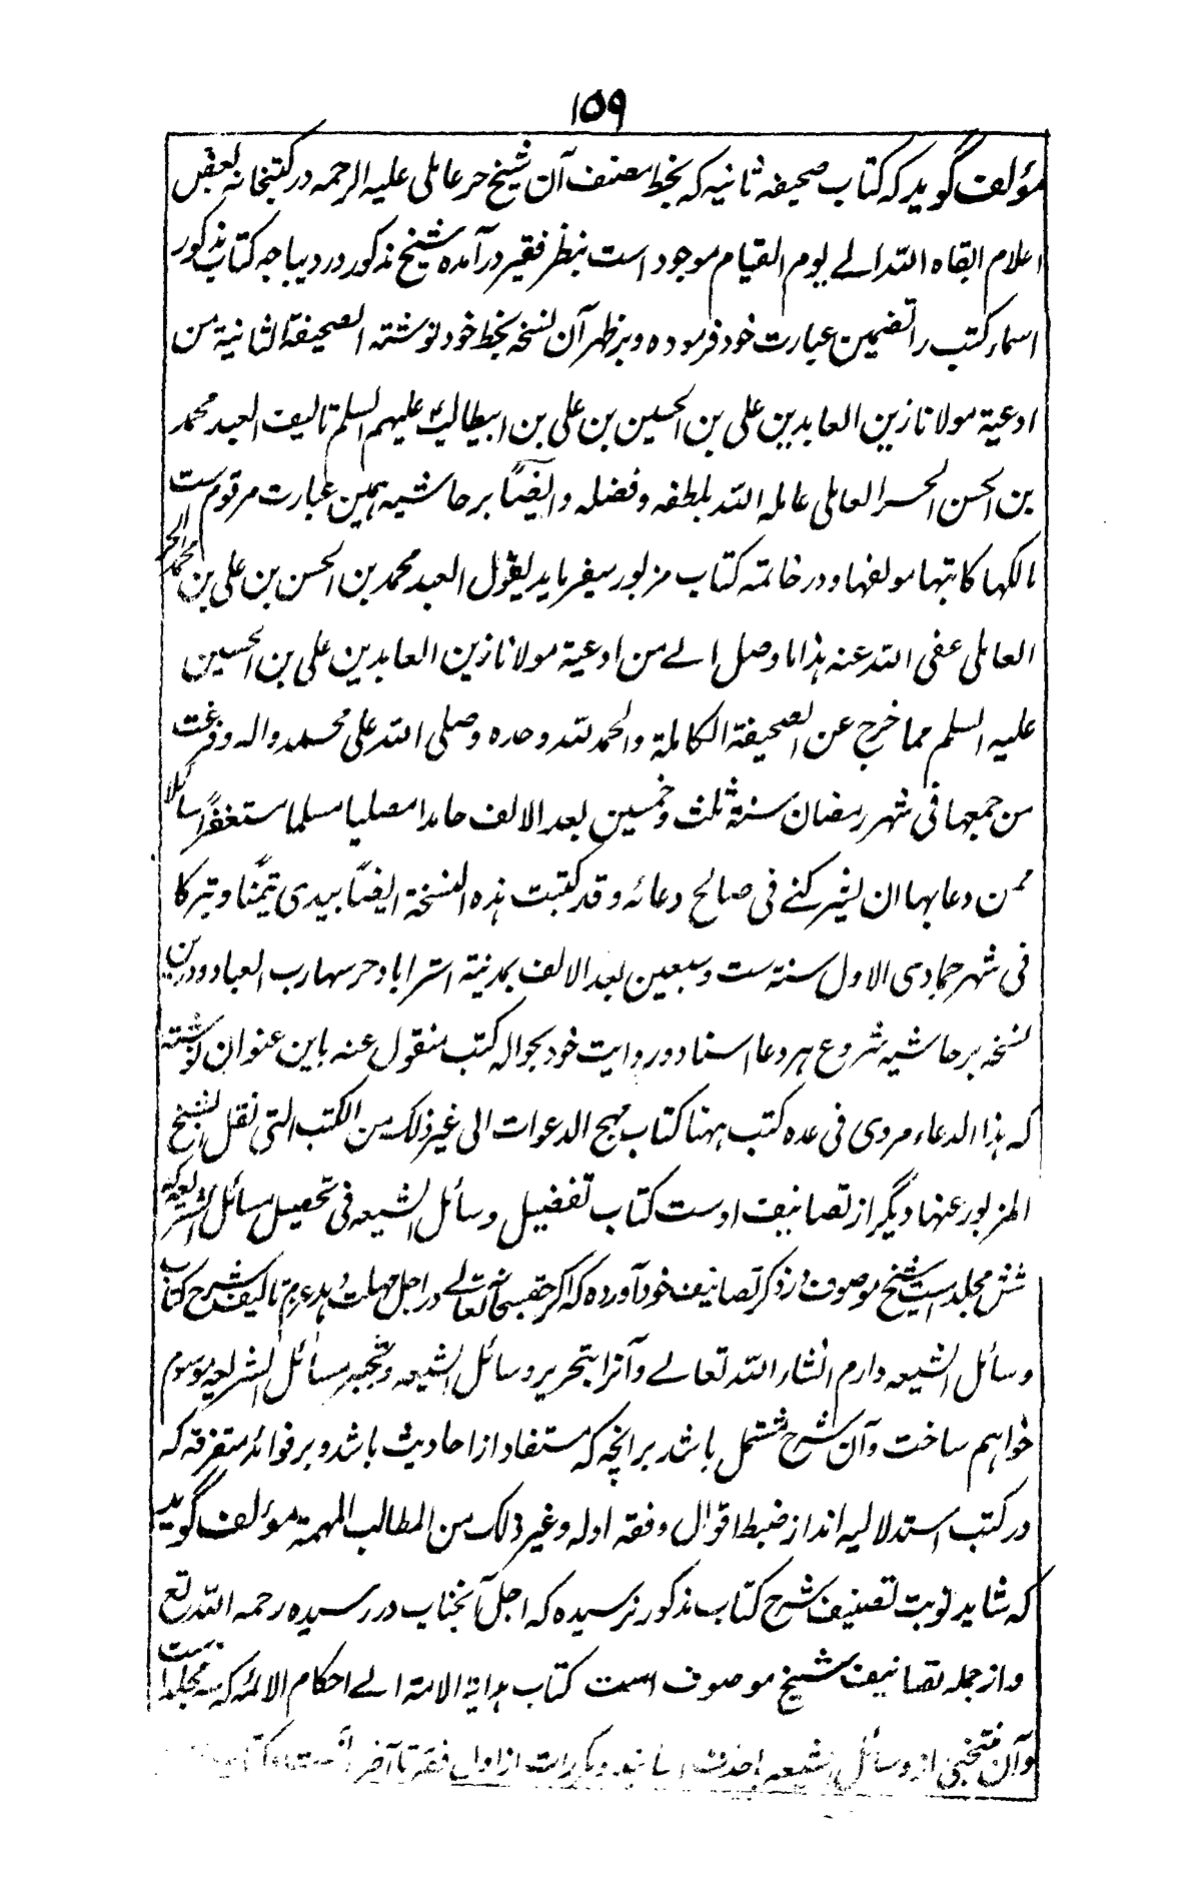 ۱۵۹
مؤلف گوید که کتاب صحیفه ثانیه که بخط مصنف آن شیخ حر عاملی علیه الرحمه در کتبخانه بعض
اعلام ابقاه الله الے یوم القیام موجود است بنظر فقیر درآمده شیخ مذکور در دیباجه کتاب مذکور
اسماء کتب را تضمین عبارت خود فرموده و بر ظهر آن نسخه بخط خود نوشته الصحیفة الثانیة من
ادعیة مولانا زین العابدین علی بن الحسین بن علی بن ابیطالب علیهم السلم تالیف العبد محمد
بن الحسن الحر العاملی عامله الله بلطفه و فضله و ایضاً بر حاشیه همین عبارت مرقوم ست
مالکها کاتبها مولفها و در خاتمه کتاب مزبور میفرماید یقول العبد محمد بن الحسن بن علی بن محمد الحر
العاملی عفی الله عنه هذا ما وصل الے من ادعیة مولانا زین العابدین علی بن الحسین
علیه السلم مما خرج عن الصحیفة الکاملة والحمد لله وحده وصلی الله علی محمد واله وفرغت
من جمعها فی شهر رمضان سنة ثلث وخمسین بعد الالف حامدا مصلیا مسلما مستغفراً سائلا
ممن دعا بها ان یشرکنے فی صالح دعائه وقد کتبت هذه النسخة ایضاً بیدی تیمّنا وتبرکا
فی شهر جمادی الاول سنة ست وسبعین بعد الالف بمدینة استراباد حرسها رب العباد ودرین
نسخه بر حاشیه شروع هر دعا اسناد و روایت خود بحواله کتب منقول عنه باین عنوان نوشته
که هذا الدعاء مروی فی عده کتب ههنا کتاب مهج الدعوات الی غیر ذلک من الکتب التی نقل الشیخ
المزبور عنها دیگر از تصانیف اوست کتاب تفضیل وسائل الشیعه فی تحصیل مسائل الشریعه که
شش مجلد است شیخ موصوف در ذکر تصانیف خود آورده که اگر حقسبحانه تعالے در اجل مهلت بدهد عزم تالیف شرح کتاب
وسائل الشیعه دارم انشاء الله تعالے و آنرا بتحریر وسائل الشیعه وتحبیر مسائل الشریعه موسوم
خواهم ساخت و آن شرح مشتمل باشد بر انچه که مستفاد از احادیث باشد و بر فوائد متفرقه که
در کتب استدلالیه اند از ضبط اقوال و فقه اوله وغیر ذلک من المطالب المهمة مؤلف گوید
که شاید نوبت تصنیف شرح کتاب مذکور نرسیده که اجل آنجناب در رسیده رحمه الله تع
و از جمله تصانیف شیخ موصوف است کتاب هدایة الامة الے احکام الائمه که سه مجلد است
وآن منتخبی از وسائل الشیعه بحذف اسانید و مکررات از اول فقه تا آخر